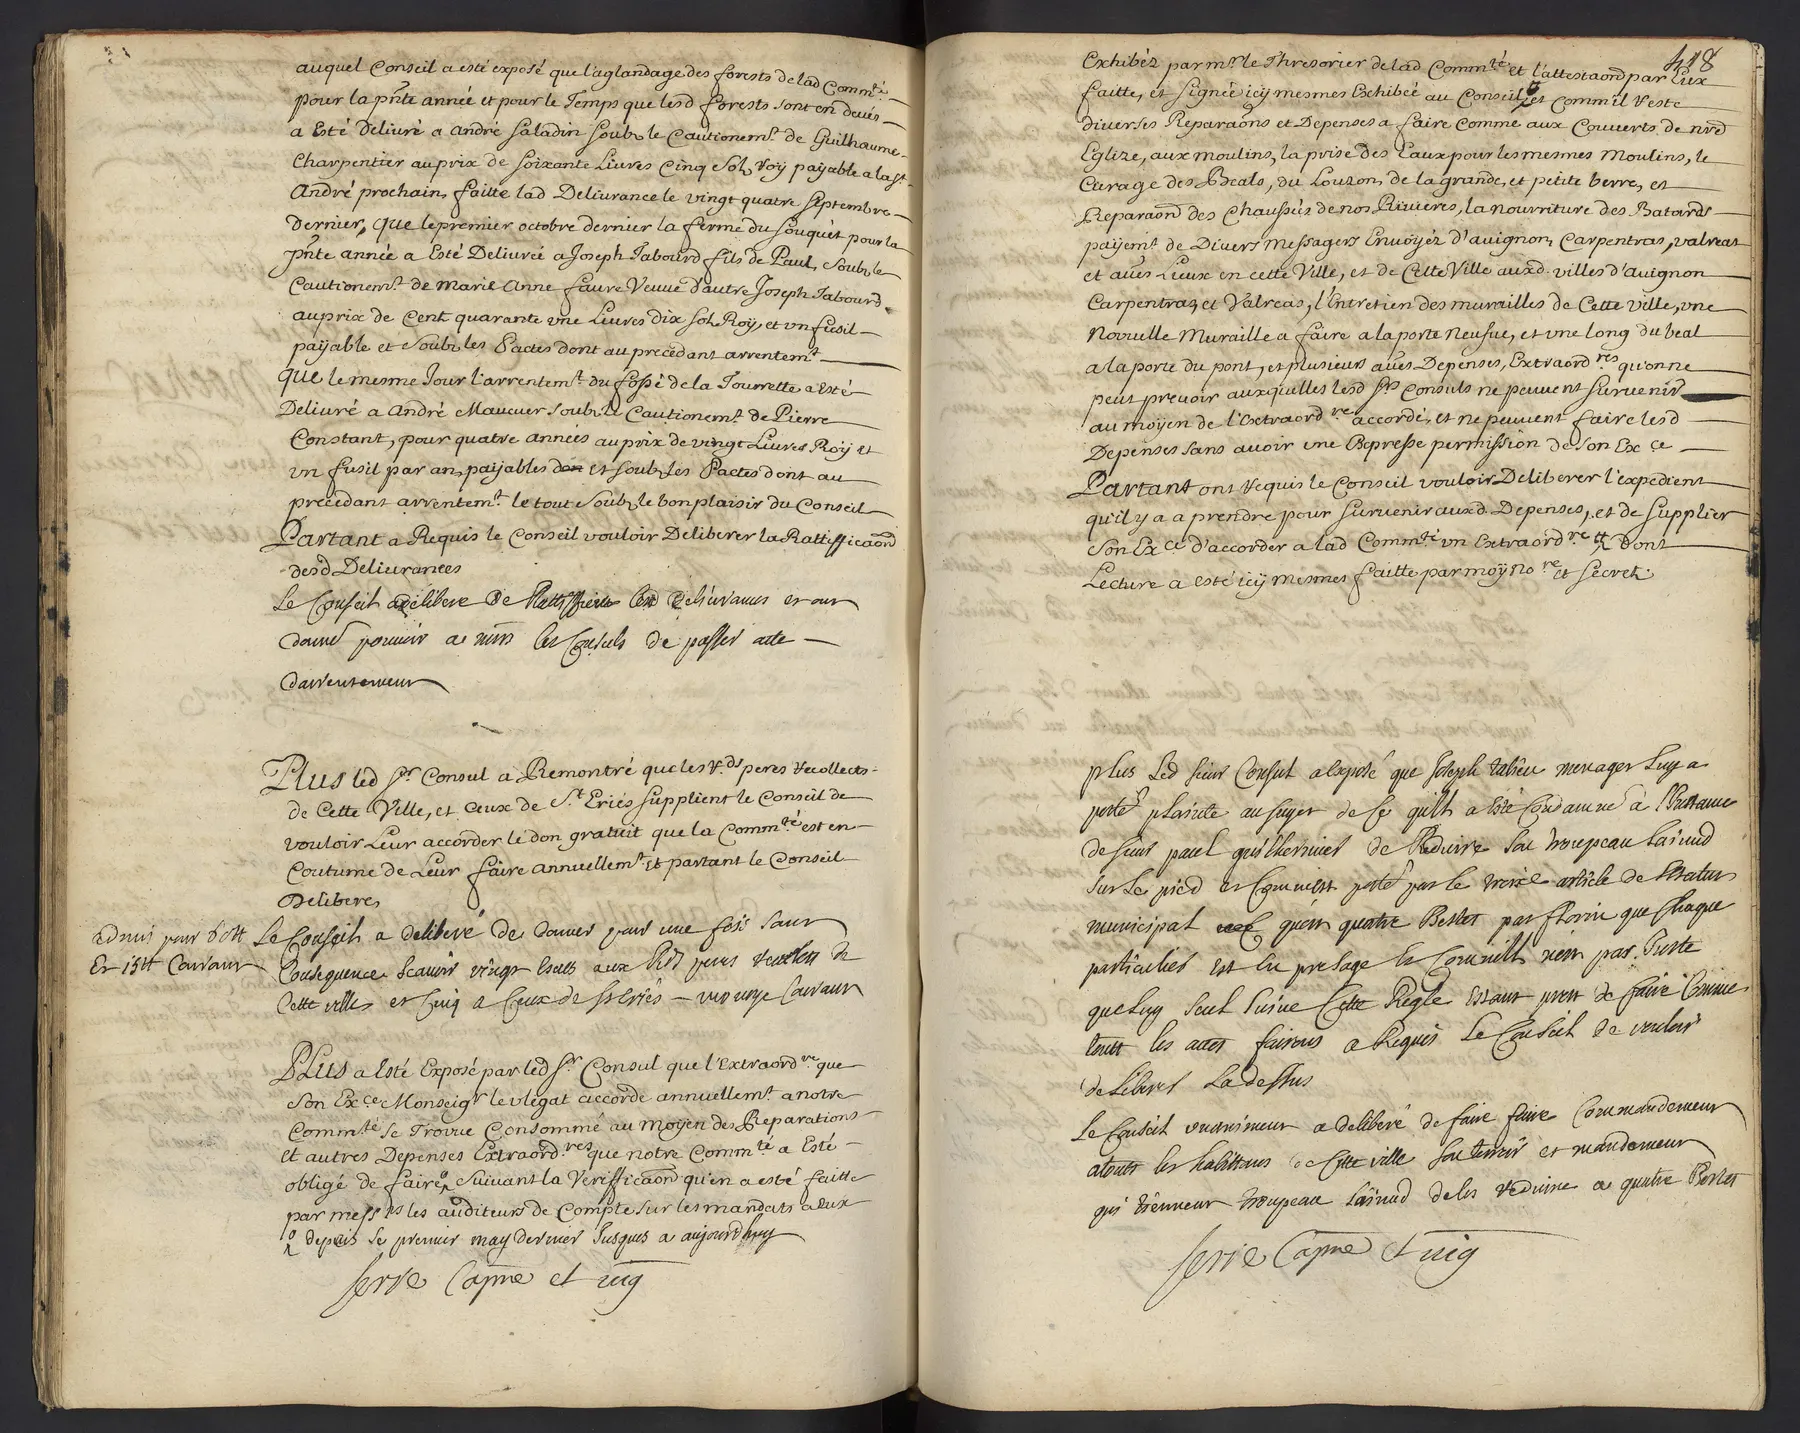 auquel Conseil a esté exposé que l'aglandage des forests de lad Commté
pour la pnte année et pour le Temps que lesd forests sont en deués
a Esté Deliuré a andré saladin soub le Cautionemt de Guilhaume
Charpentier au prix de soixante Liures Cinq Sol Roy payable a la st
André prochain, faitte lad Deliurance le vingt quatre septembre
dernier, que le premier octobre dernier la ferme du souquet pour la
pnte année a Esté Deliurée a Joseph Tabourd fils de Paul, soub le
Cautionemt de marie Anne faure Veuue d'autre Joseph Tabourd
au prix de Cent quarante vne Liures Dix sol Roy, et vn fusil
payable et soub les Pactes dont au precedant arrentemt
que le mesme Jour l'arrentemt du fossé de la Tourrette a Esté
Deliuré a André Maucuer soub le Cautionemt de Pierre
Constant, pour quatre années au prix de vingt Liures Roy et
vn fusil par an, payables et soub les Pactes dont au
precedant arrentemt le tout soub le bon plaisir du Conseil
Partant a Requis le Conseil vouloir Deliberer la Rattifficaōn
desd Deliurances
Le Conseil a délibere de Rattiffier lesd deliurances et ont
donné pouuoir a mrs les Consuls de passer acte
darrentement
Plus led sr Consul a Remontré que les Rds peres recollects
de Cette Ville, et Ceux de St Eriés supplient le Conseil de
vouloir Leur accorder le don gratuit que la Commté est en
Coutume de Leur faire annuellemt et partant le Conseil
Deliberer
admis pour 60tt
et 15tt Couvant
Le Conseil a deliberé de donner pour une fois sans
Consequence scauoir vingt Escus aux Rds peres recollets de
Cette ville et Cinq a Ceux de st Eriés
PLus a Esté Exposé par led sr Consul que l'Extraordre que
son Exce Monseigr le vlegat accorde annuellemt a notre
Commté se Trouue Consommé au moyen des Reparations
et autres Depenses Extraordres que notre Commté a Esté
obligé de faire, suiuant la Verifficaōn qu'en a esté faitte
par messrs les auditeurs de Compte sur les mandats a Eux
depuis le premier may dernier Jusques a aujourdhuy
serre Capne et vig
418
Exhibéz par mr le Thresorier de lad Commté et l'attestaōn par Eux
faitte, et signée icy mesmes Exhibée au Conseil, et Comm'il reste
diuerses Reparaōns et Depenses a faire Comme aux Couuerts de nrd
Eglize, aux moulins, la prise des Eaux pour les mesmes Moulins, le
Curage des Beals, du Louzon, de la grande, et petite berre, et
Reparaōn des Chaussés de nos Riuieres, la nourriture des Batards
payemt de Diuers messagers Enuoyéz d'auignon, Carpentras, valreas
et aues Lieux en cette Ville, et de Cette Ville auxd. villes d'Auignon
Carpentras, et Valreas, l'Entretien des murailles de Cette ville, vne
Nouuelle Muraille a faire a la porte Neufue, et vne long du beal
a la porte du pont, et plusieurs aues Depenses, Extraordres qu'on ne
peut preuoir auxquelles lesd srs Consuls ne peuuent suruenir
au moyen de l'Extraordre accordé, et ne peuuent faire lesd
Depenses sans auoir vne Expresse permission de Son Exce
Partant ont requis le Conseil vouloir Deliberer l'expedient
qu'il y a a prendre pour suruenir auxd. Depenses, et de supplier
Son Exce d'accorder a lad Commté vn Extraordre dont
Lecture a esté icy mesmes faitte par moy nore et secret.
plus Led sieur Consul a Exposé que Joseph valieu menager Luy a
porté plainte au sujet de Ce quil a esté Condamné a l'Instance
de sieur paul guilhermier de Reduire son troupeau lainud
sur le pied et Comm'est porté par le treize article de Statuts
municipal quest quatre Bestes par florin que chaque
particulier
que Luy seul suive Cette Regle Estant prest de faire Comme
touts les aues fairont a Requis Le Conseil de vouloir
deLiberer La dessus
Le Conseil vnanimement a deliberé de faire faire Commandement
a touts les habittans de Cette ville son terroir et mandement
qui tiennent troupeau lainud de les reduire a quatre Bestes
serre Capne et vig